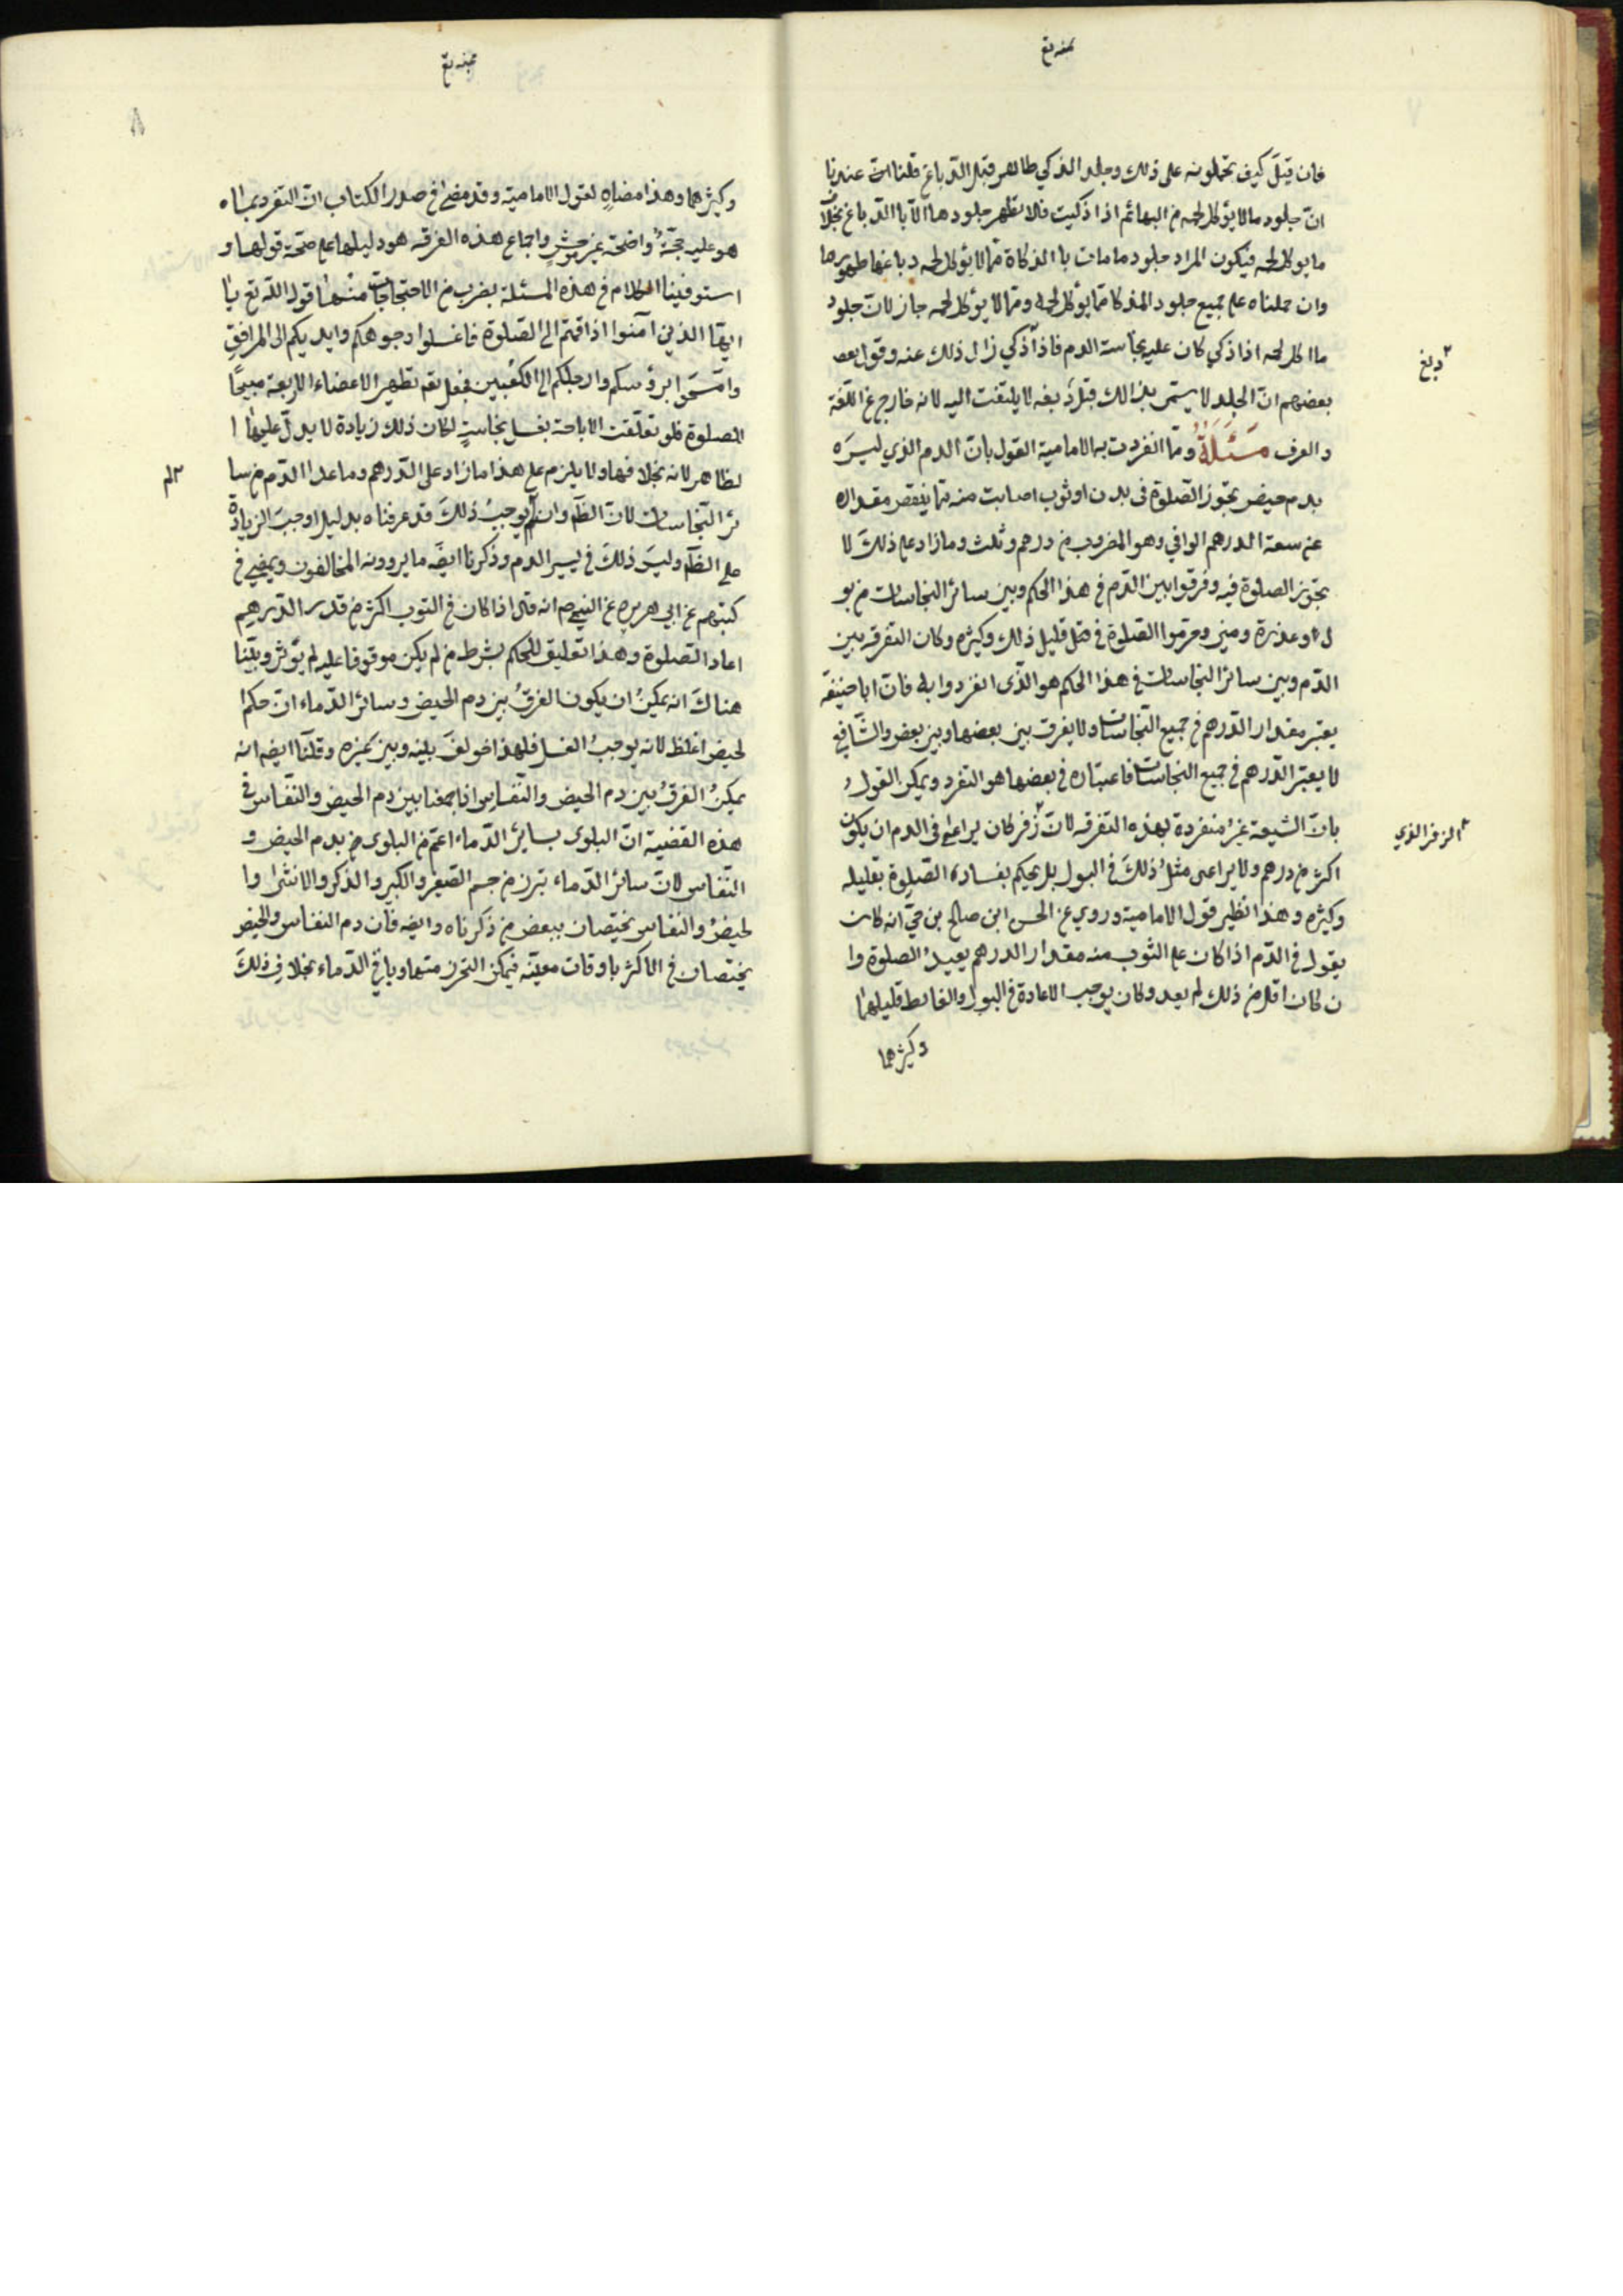 فان قيل كيف تحملونه على ذلك وجلد الذكي طاهر قبل الدباغ قلنا ان عندنا
انّ جلود ما لا يؤكل لحمه من البهائم اذا ذكيت فلا تطهر جلودها الّا بالدباغ بخلاف
ما يوكل لحمه فيكون المراد جلود ما مات با الذكاة ممّا لا يؤكل لحمه دباغها طهورها
وان حملناه على جميع جلود المذكا ممّا يؤكل لحمه وممّا لا يؤكل لحمه جاز لانّ جلود
ما اكل لحمه اذا ذكي كان عليه نجاسة الدم فاذا ذكي زال ذلك عنه وقول بعض
بعضهم انّ الجلد لا يستمر بذالك قبل دبغه لا يلتفت اليه لانه خارج عن اللّغة
و العرف مَسْئَلَةٌ وممّا انفردت به الامامية القول بانّ الدم الذي ليسَ
بدم حيض تجوز الصّلوة في بدن او ثوب اصابت منه ما ينقص مقداره
عن سعة الدرهم الوافي وهو المضروب من درهم وثلث وما زاد على ذلكَ لا
تجوّز الصلوة فيه وفرقوا بين الدّم في هذا الحكم وبين سائر النجاسات من بو
ل او عذرة ومني وحرموا الصّلوة في قليل ذلك وكثيره وكان التفرقه بين
الدّم وبين سائر النجاسات في هذا الحكم هو الذّى انفردوا به فانّ ابا حنيفه
يعتبر مقدار الدّرهم في جميع النّجاسات ولا يفرق بين بعضها وبين بعض والشّافعي
لا يعتبر الدّرهم في جميع النجاسات فاعتباره في بعضها هو التفرد ويمكن القول
بانّ الشيعة غير منفردة بهذه التفرقه لانّ زفر كان يراعى في الدم ان يكون
اكثر من درهم ولا يراعى مثل ذلكَ في البول بل يحكم بفساد الصّلوة بقليله
وكثيره وهذا نظير قول الامامية وروي عن الحسن ابن صالح بن حيّ انه كان
يقول في الدّم اذا كان على الثوب منه مقدار الدرهم يعيد الصلوة وا
ن كان اقل من ذلك لم يعد وكان يوجب الاعادة في البول والغايط قليلهما
وكثيرهما
دبغ
الزفر الذي
وكثيرهما وهذا مضاهٍ لقول الامامية وقد مضى في صدر الكتاب انّ التفرد بما
هو عليه حجّة واضحة غير موحش واجماع هذه الفرقه هو دليلها على صحّة قولها و
استوفينا الكلام في هذه المسئلة بضرب من الاحتجاجات منها قوله اللّه تع يا
ايها الذين آمنوا اذا قمتم الى الصّلوة فاغسلوا وجوهكم وايديكم الى المرافقِ
وامسحوا برؤسكم وارجلكم الى الكعبين فجعل تطهير الاعضاء الاربعة مبيحًا
للصلوة فلو تعلّقت الاباحة بغسل نجاسةٍ لكان ذلك زيادة لا يدلّ عليها ا
لظاهر لانه بخلافها ولا يلزم على هذا ما زاد على الدّرهم وما عدا الدّم من سا
ئر النّجاسات لانّ الظّاهر وان لم يوجبُ ذلكَ قد عرفناه بدليل اوجبَ الزيادة
على الظّاهر وليسَ ذلكَ في يسير الدم وذكرنا ايضَ ما يروونه المخالفون ويمضي في
كتبهم عن ابي هريره عن النبي ص انه قال اذا كان في الثوب اكثر من قدر الدّرهم
اعاد الصّلوة وهذا تعليق للحكم بشرط من لم يكن موقوفا عليه لم يؤثر وبيّنا
هناكَ انه يمكنُ ان يكون الفرقُ بين دم الحيض وسائر الدّماء انّ حكم ا
لحيض اغلظ لانه يوجبُ الغسل فلهذا خولفَ بينه وبين غيره وقلنا ايضه انه
يمكنُ الفرقُ بين دم الحيض والنّفاس في
هذه القضية انّ البلوى بسايرُ الدّماء اعمّ من البلوى من بدم الحيض و
النّفاس لانّ سائر الدّماء تبرز من جسم الصّغير والكبير والذكر والانثى وا
لحيضُ والنفاس يختصان ببعض من ذكرناه وايضه فانّ دم النفاس والحيض
يختصان في الاكثر باوقات معيّنه فيمكن التحرز منهما وباقي الدّماء بخلاف ذلكَ
لم